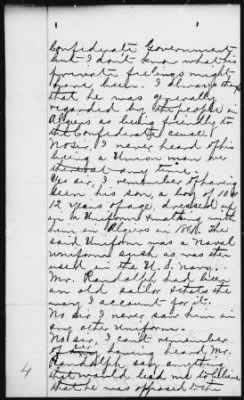 Confederate Government
but I don't know what his
private feelings might
have been. I always thought
that he was generally
regarded by the people in
Algiers as being friendly to
the Confederate cause.
No sir, I never heard of his
being a Union man
at any time.
Yes sir, I remember of having
seen his son, a boy of 10 or
12 years of age, dressed up
in a Uniform & walking with
him in Algiers in 1861. The
said Uniform was a Naval
Uniform such as was then
used in the U.S. Navy.
Mr. Randolph had been
an old sailor & thats the
way I account for it.
No sir I never saw him in
any other Uniform.
No sir, I can't remember
of ever having heard Mr.
Randolph say anything
that would lead me to believe
that he was opposed to the
4